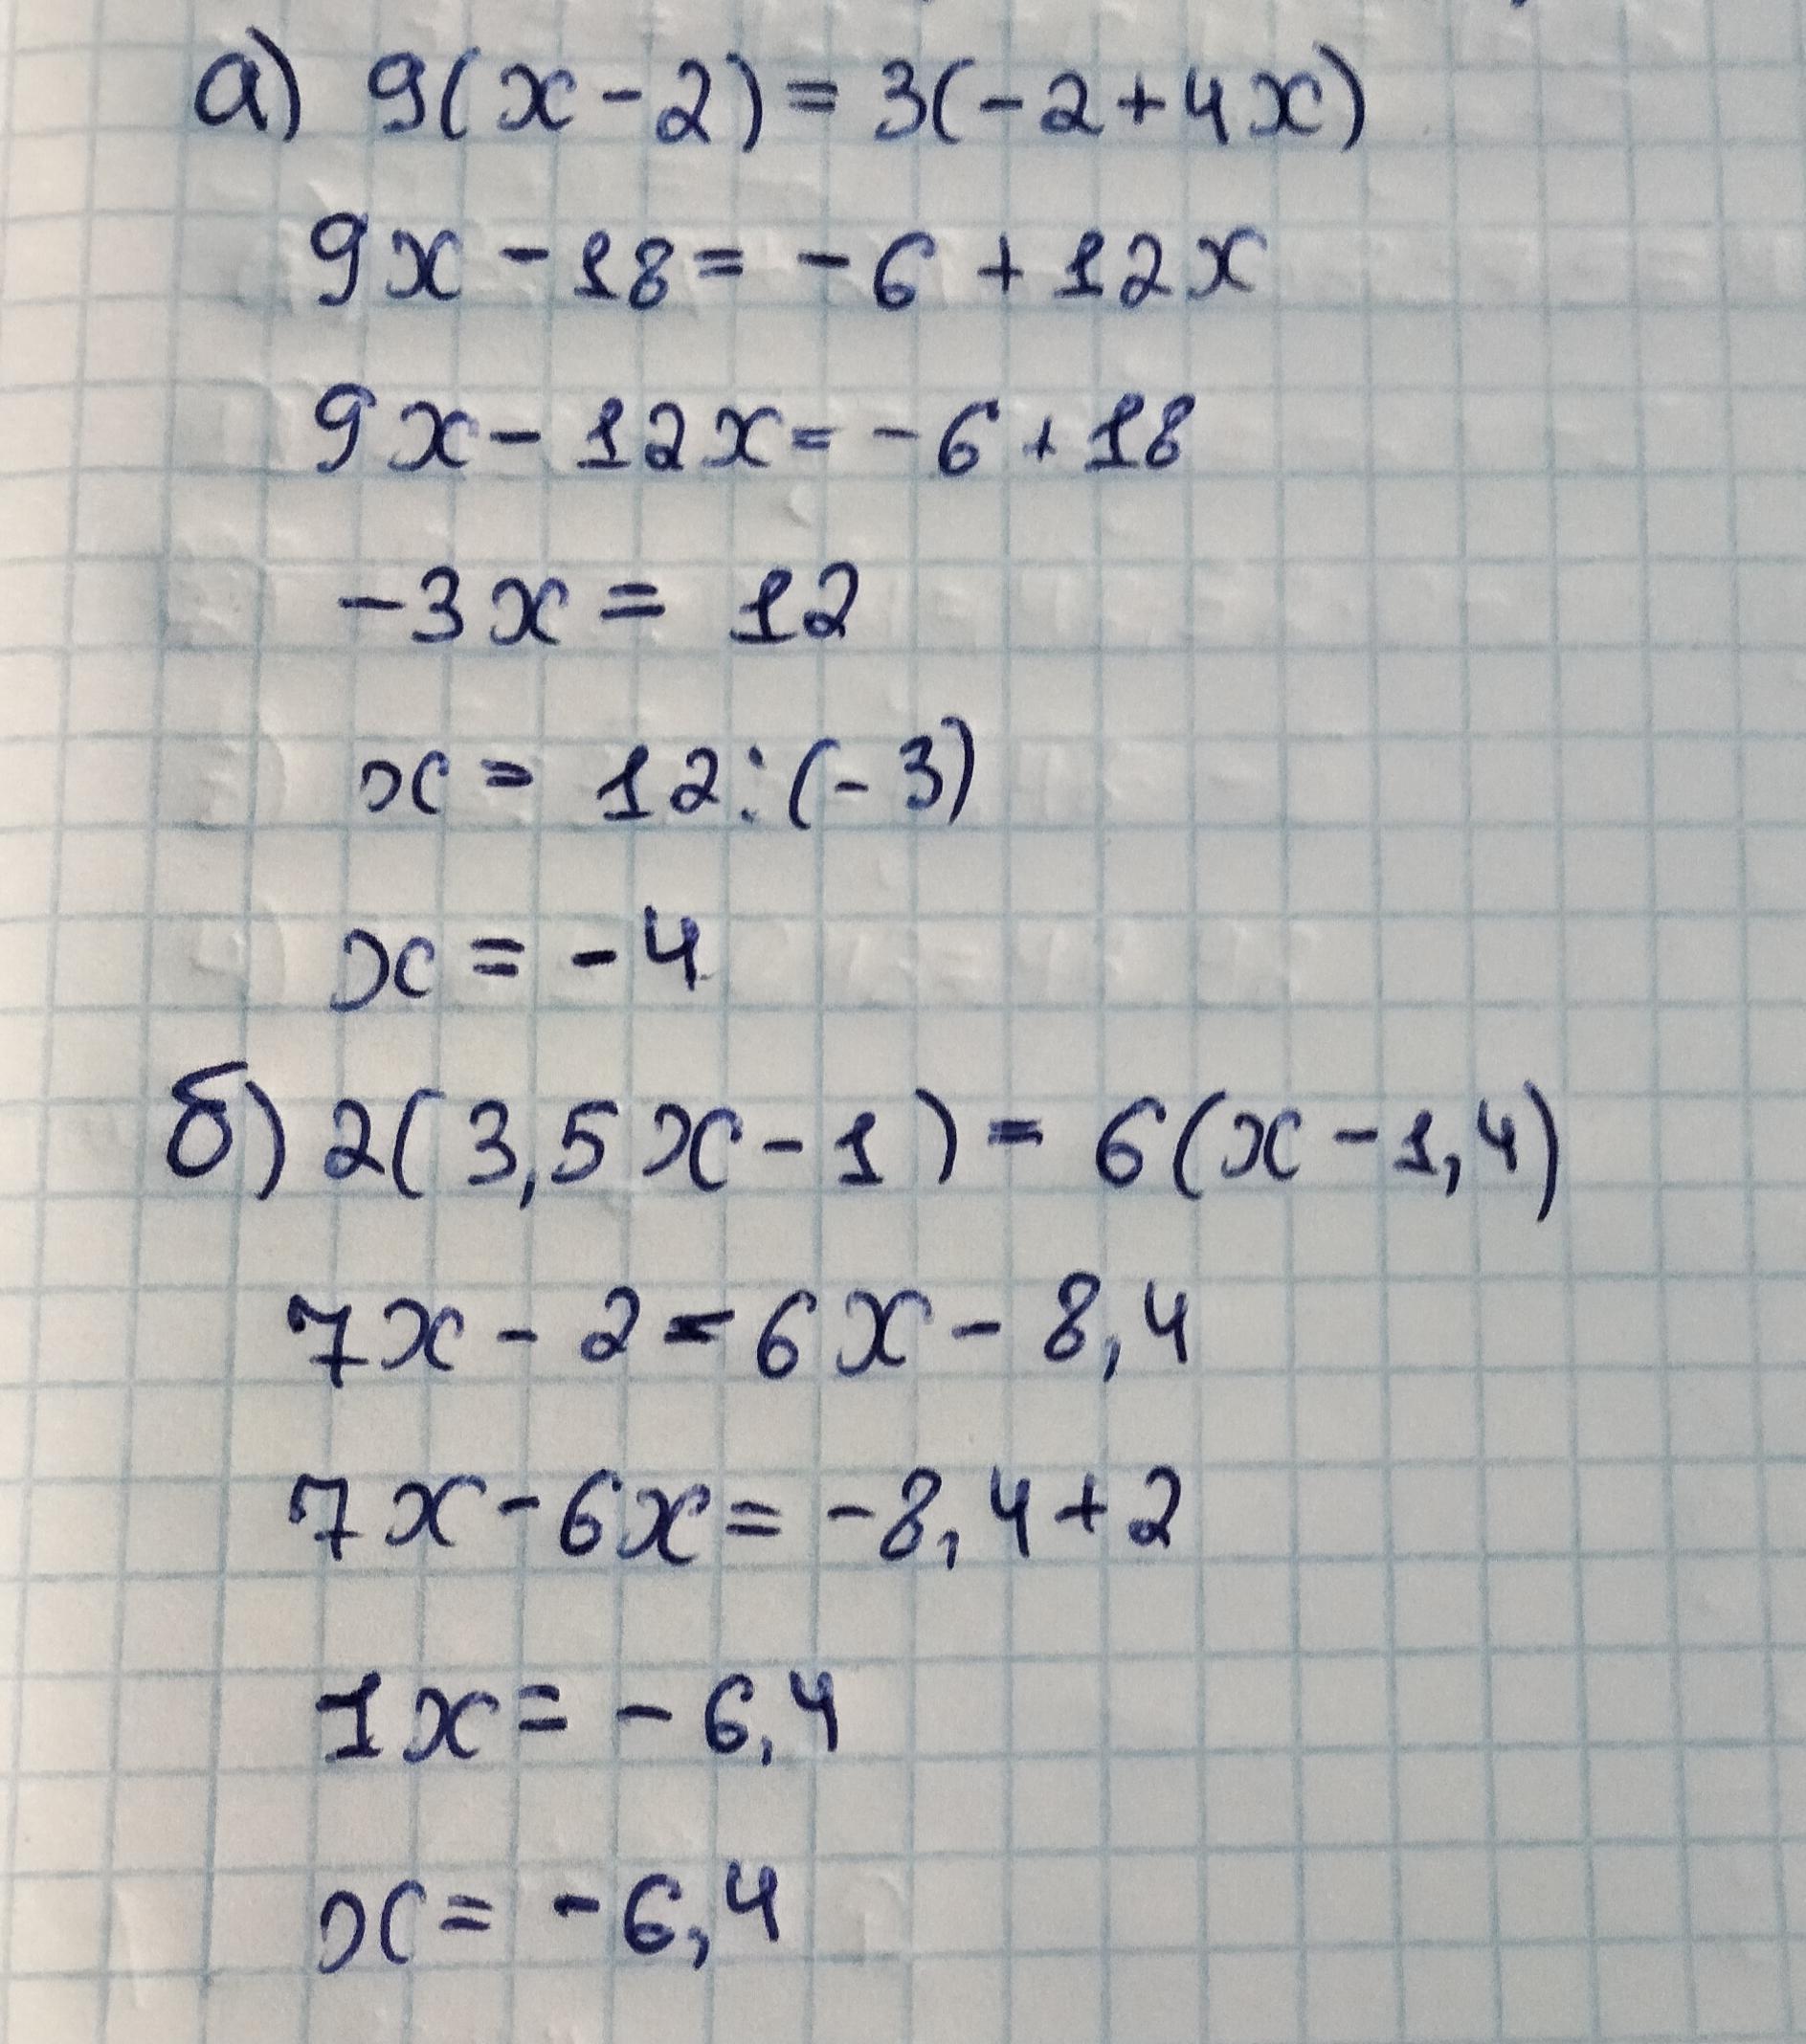 а) 9(x-2)=3(-2+4x)
9x-18=-6+12x
9x-12x=-6+18
-3x=12
x=12:(-3)
x=-4
б) 2(3,5x-1)=6(x-1,4)
7x-2=6x-8,4
7x-6x=-8,4+2
1x=-6,4
x=-6,4